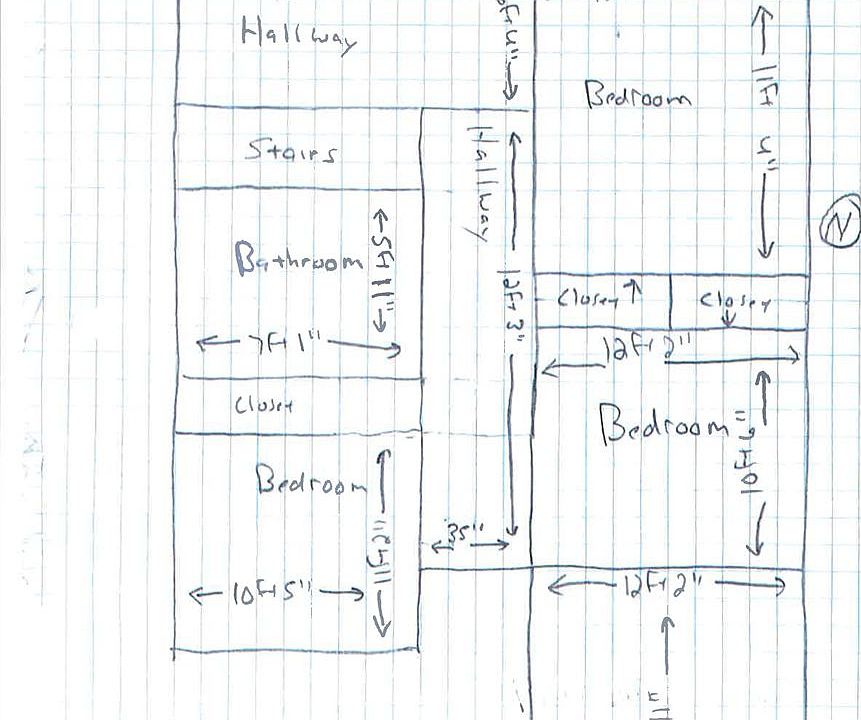 Hallway
Bedroom
11Ft 4"
Stairs
Hallway
N
Bathroom
5Ft 11"
12Ft 3"
Closet
Closet
7Ft 1"
12Ft 2"
Closet
Bedroom
Bedroom
35"
11Ft 2"
10Ft 5"
12Ft 2"